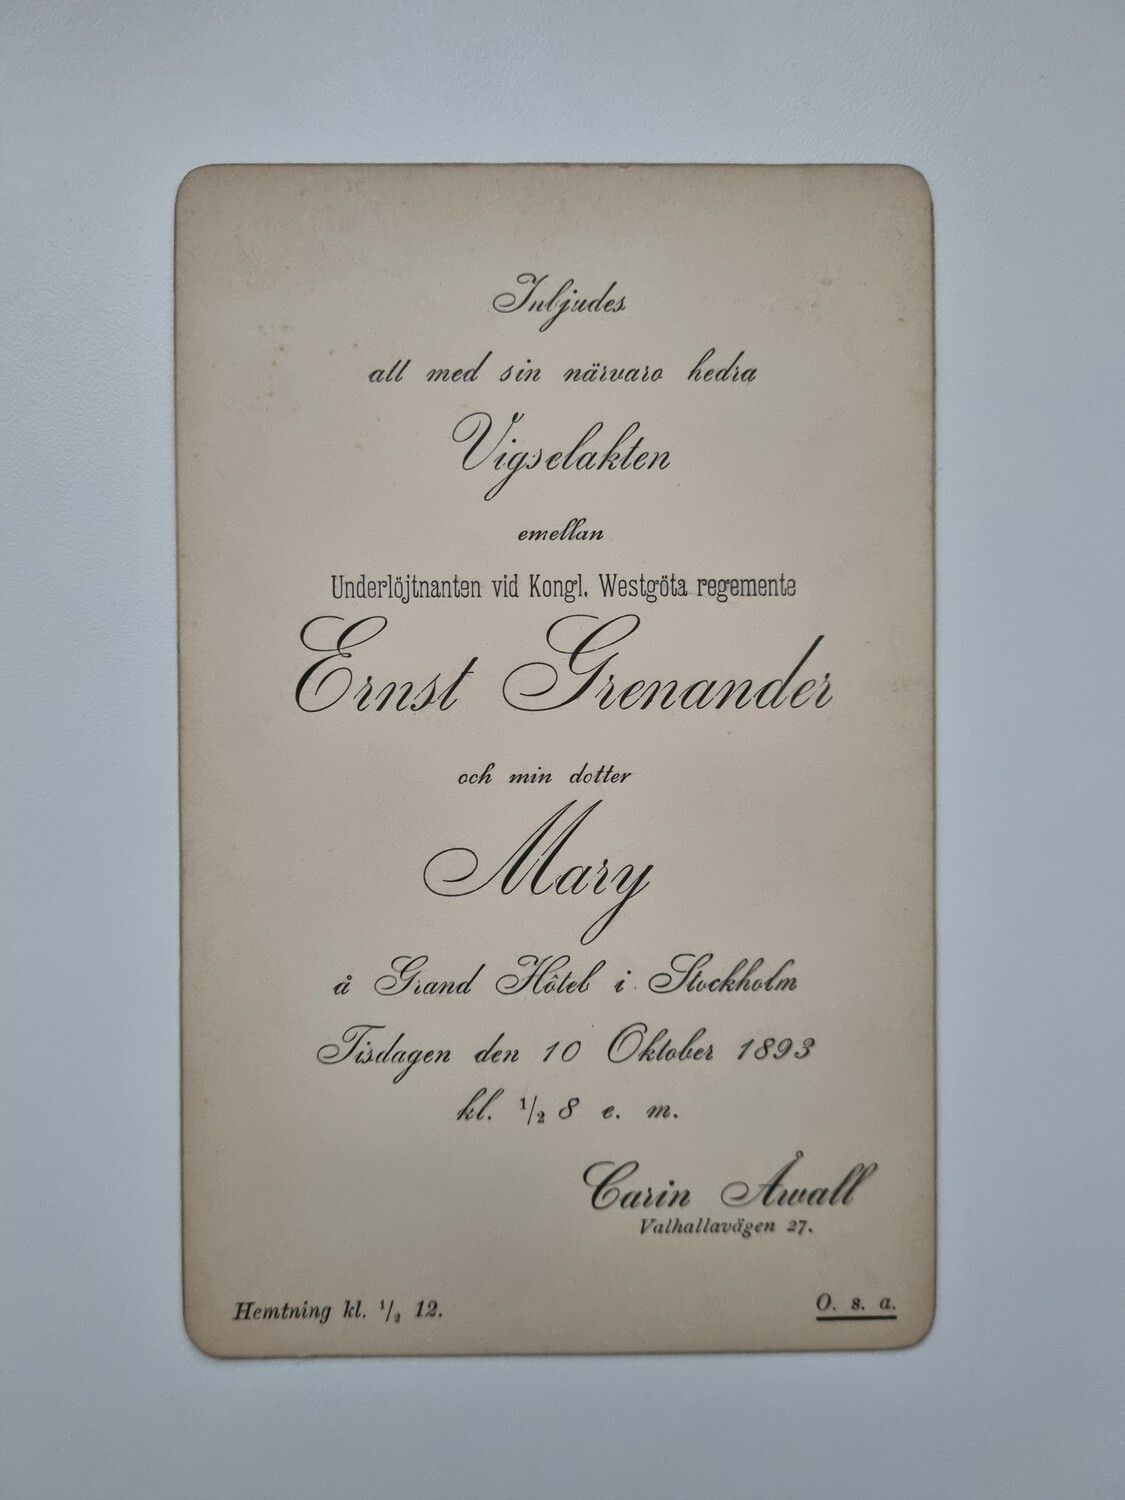 Inbjudes
att med sin närvaro hedra
Vigselakten
emellan
Underlöjtnanten vid Kongl. Westgöta regemente
Ernst Grenander
och min dotter
Mary
å Grand Hôtel i Stockholm
Tisdagen den 10 Oktober 1893
kl. 1/2 8 e. m.
Carin Åwall
Valhallavägen 27.
Hemtning kl. 1/2 12.
O. s. a.